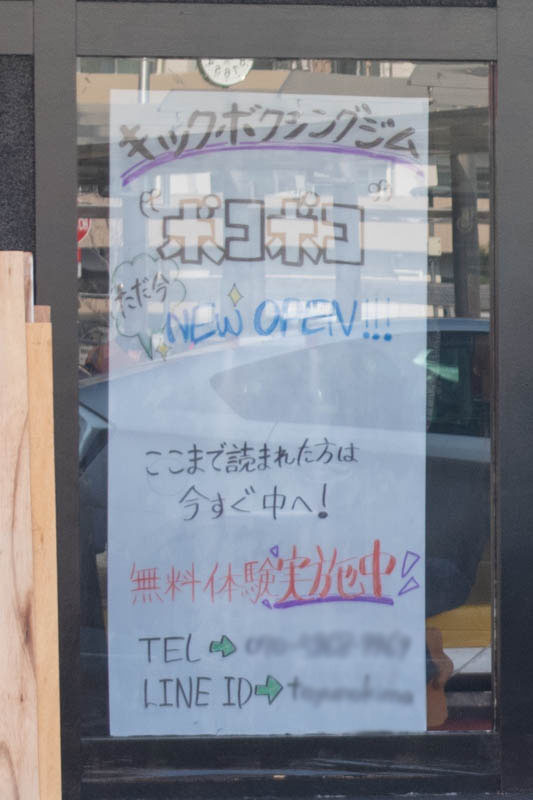 キックボクシングジム
ボコボコ
ただ今
NEW OPEN!!!
ここまで読まれた方は
今すぐ中へ!
無料体験実施中
TEL➡
LINE ID➡